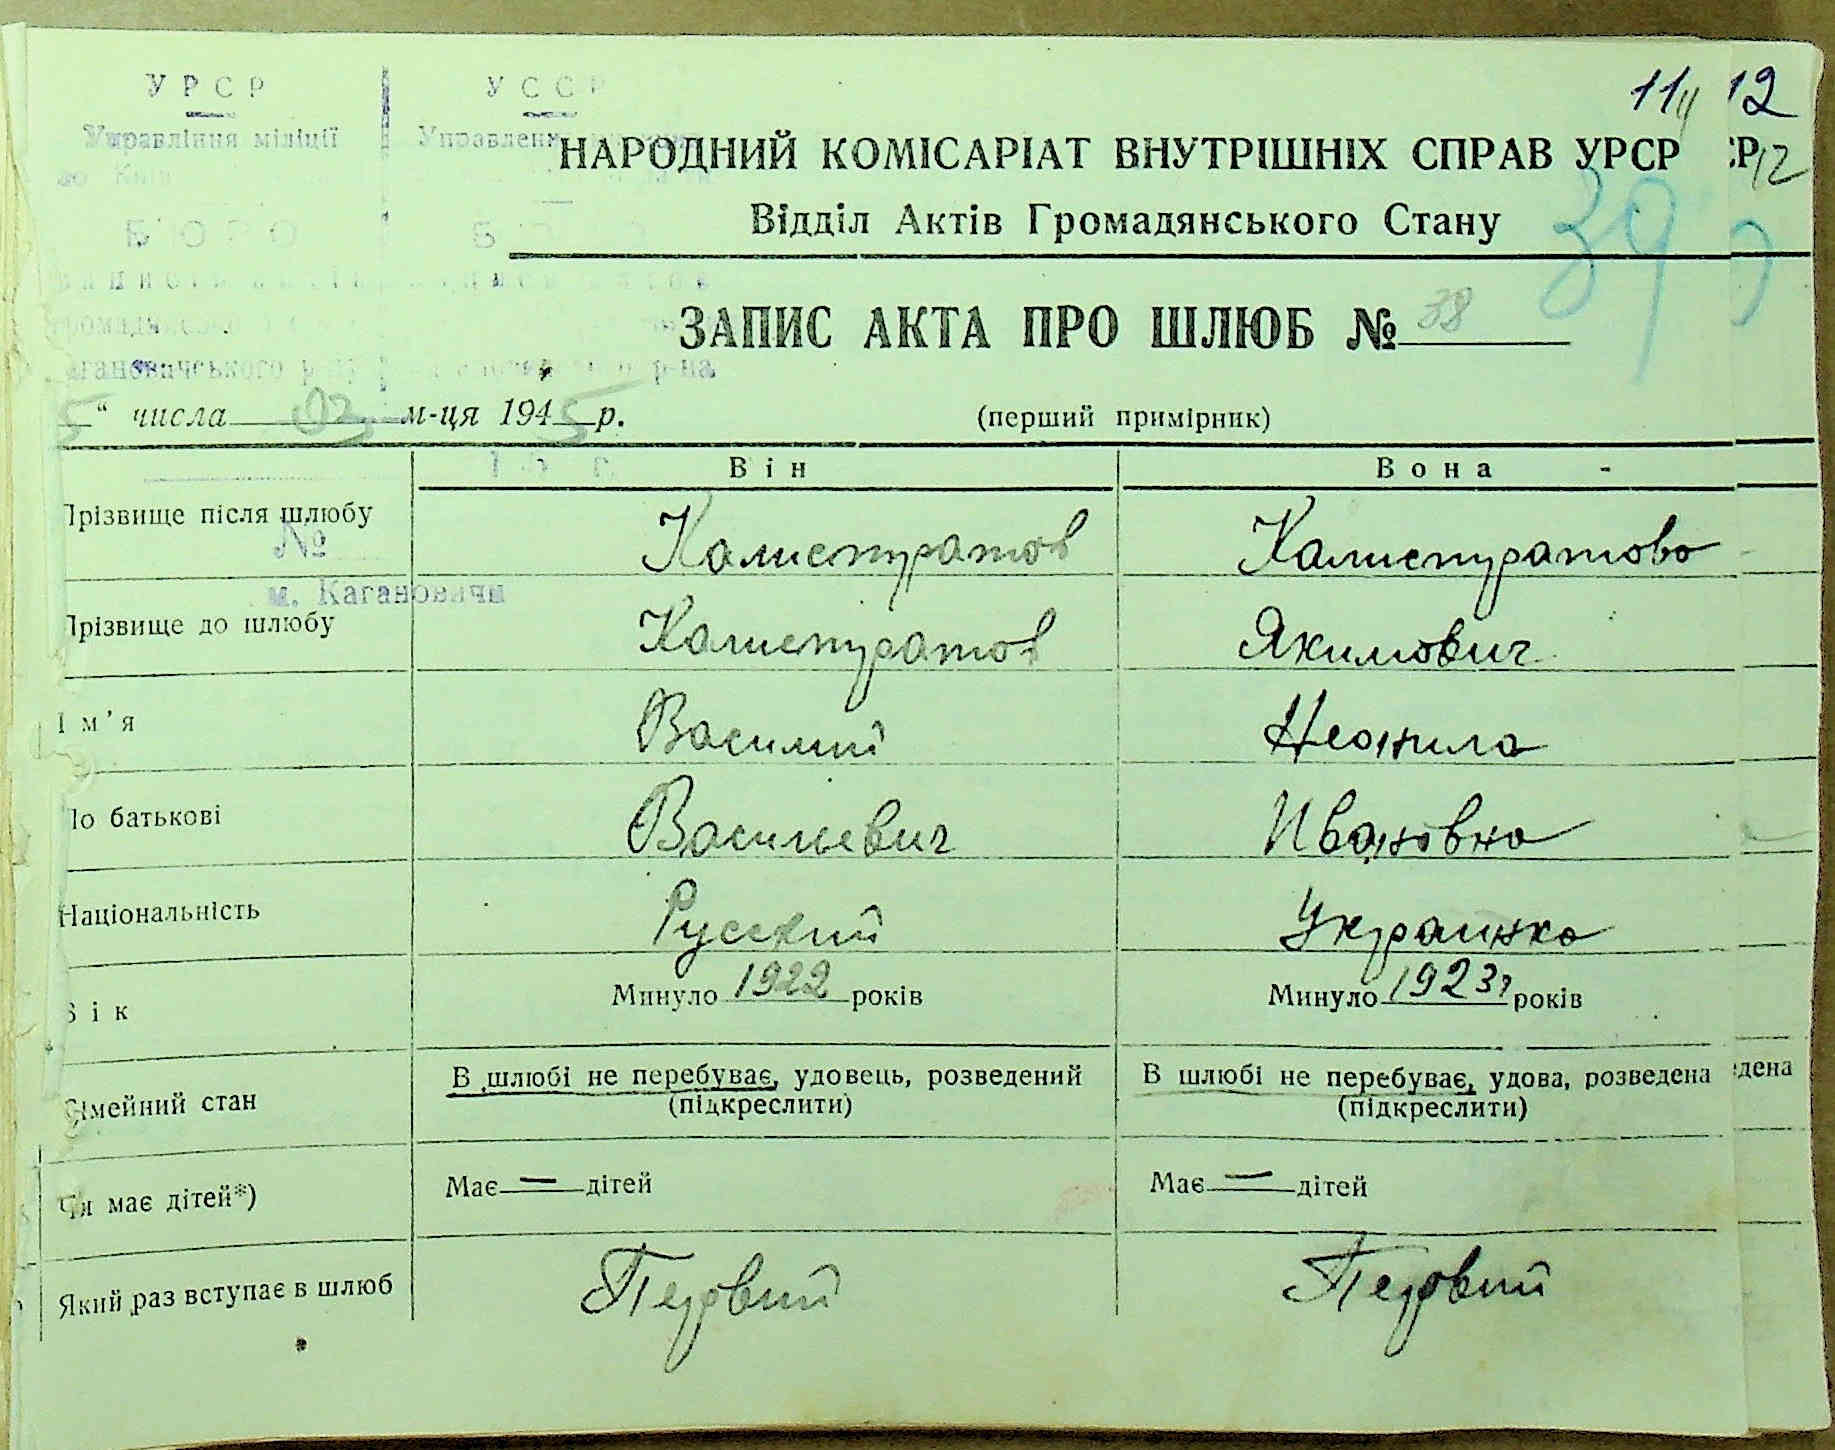 УРСР УССР
11 12
Управління міліції
НАРОДНИЙ КОМІСАРІАТ ВНУТРІШНІХ СПРАВ УРСР СР 12
БЮРО
Відділ Актів Громадянського Стану
39
ЗАПИС АКТА ПРО ШЛЮБ № 38
р-на
5 " числа 02 м-ця 1945 р. (перший примірник)
Він Вона
Прізвище після шлюбу Калистратов Калистратова
№
м. Кагановичи
Прізвище до шлюбу Калистратов Якимович
Ім'я Василий Неонила
По батькові Васильевич Ивановна
Національність Русский Украинка
Вік Минуло 1922 років Минуло 1923 г років
Сімейний стан В шлюбі не перебуває, удовець, розведений В шлюбі не перебуває, удова, розведена дена
(підкреслити) (підкреслити)
Чи має дітей*) Має — дітей Має — дітей
Який раз вступає в шлюб Первый Первый